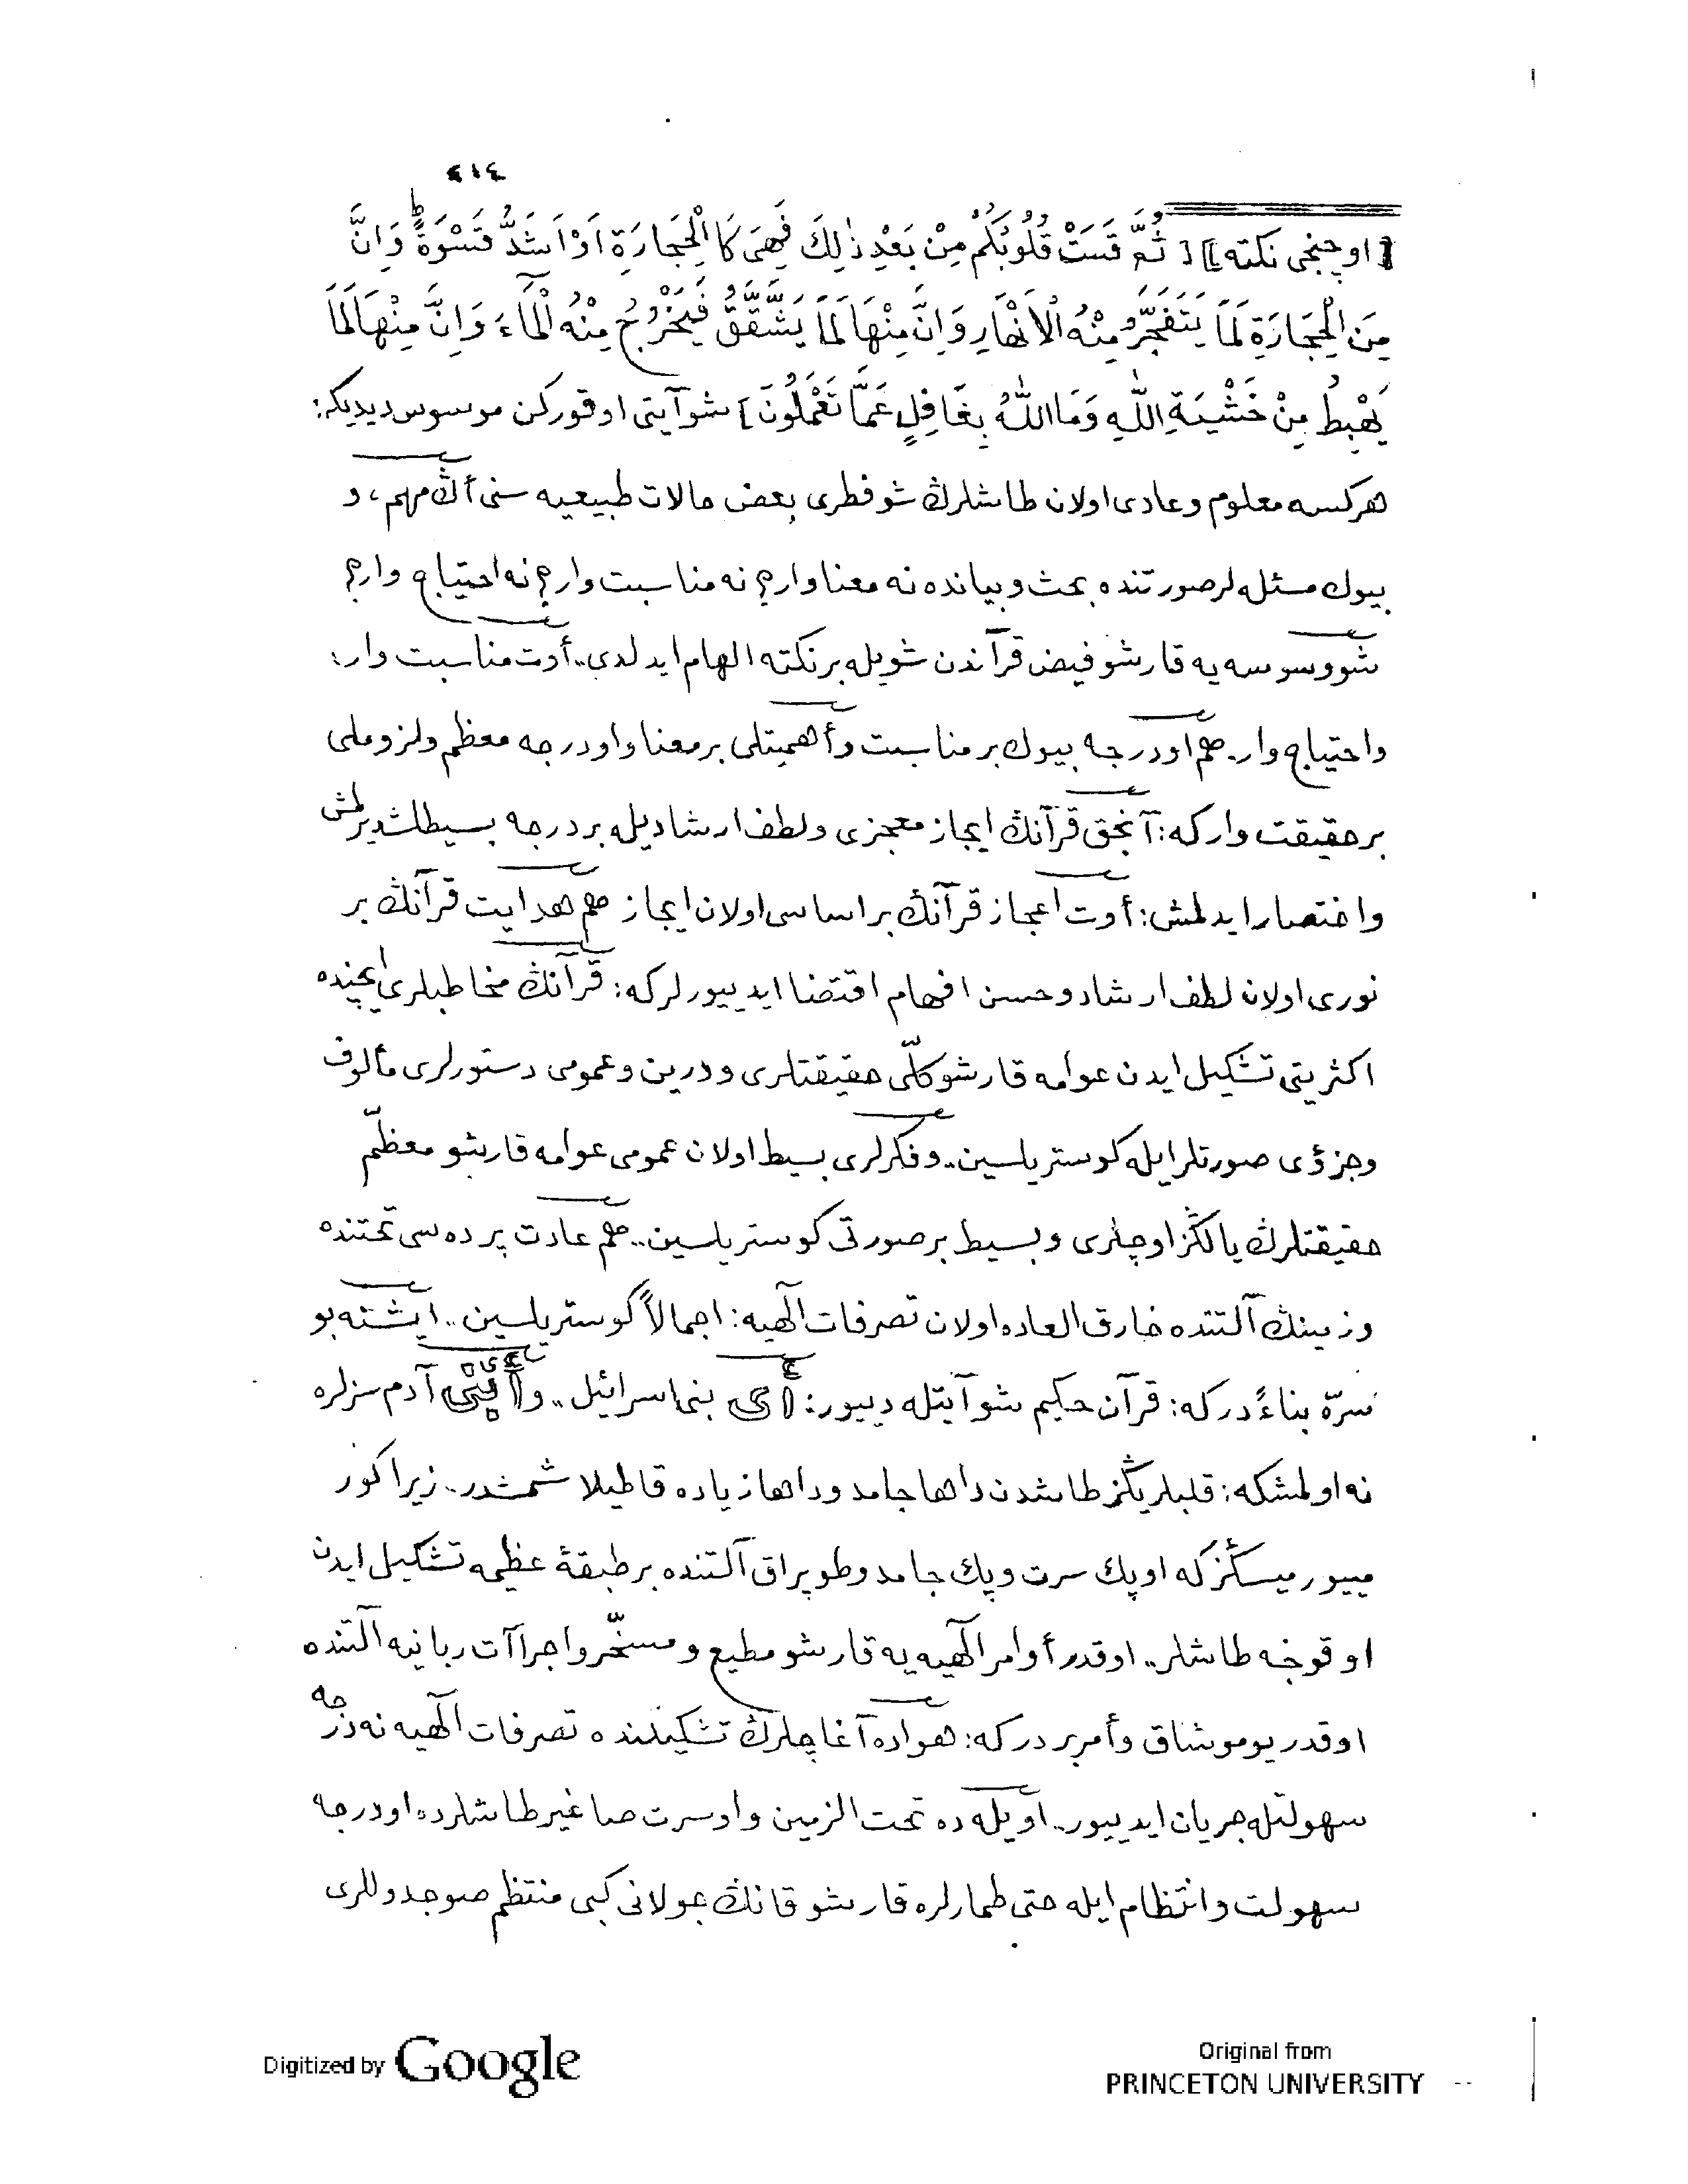 ٤١٤
[ اوچنجى نكته ] [ ثُمَّ قَسَتْ قُلُوبُكُمْ مِنْ بَعْدِ ذٰلِكَ فَهِىَ كَالْحِجَارَةِ اَوْ اَشَدُّ قَسْوَةً ط وَاِنَّ
مِنَ الْحِجَارَةِ لَمَا يَتَفَجَّرُ مِنْهُ الْاَنْهَارِ وَاِنَّ مِنْهَا لَمَا يَشَّقَّقُ فَيَخْرُجُ مِنْهُ الْمَاءَ وَاِنَّ مِنْهَا لَمَا
يَهْبِطُ مِنْ خَشْيَةِ اللّٰهِ وَمَا اللّٰهُ بِغَافِلٍ عَمَّا تَعْمَلُونَ ] شو آيتى اوقوركن موسوس ديديكه:
هركسه معلوم و عادى اولان طاشلرڭ شو فطرى بعض حالات طبيعيه سنى أڭ مهم، و
بيوك مسئله لر صورتنده بحث و بيانده نه معنا وار؟ نه مناسبت وار؟ نه احتياج وار؟
شو وسوسه يه قارشو فيض قرآندن شويله بر نكته الهام ايدلدى.. أوت مناسبت وار:
و احتياج وار. هم او درجه بيوك بر مناسبت و أهميتلى بر معنا و او درجه معظم و لزوملى
بر حقيقت واركه: آنجق قرآنڭ ايجاز معجزى و لطف ارشاديله بر درجه بسيطلشديرلمش
و اختصار ايدلمش: أوت اعجاز قرآنڭ بر اساسى اولان ايجاز هم هدايت قرآنڭ بر
نورى اولان لطف ارشاد و حسن افهام اقتضا ايدييورلركه: قرآنڭ مخاطبلرى ايچنده
اكثريتى تشكيل ايدن عوامه قارشو كلّى حقيقتلرى و درين و عمومى دستورلرى مألوف
و جزؤى صورتلر ايله كوستريلسين.. و فكرلرى بسيط اولان عمومى عوامه قارشو معظّم
حقيقتلرڭ يالڭز اوچلرى و بسيط بر صورتى كوستريلسين.. هم عادت پرده سى تحتنده
و زمينڭ آلتنده خارق العاده اولان تصرفات الٓهيه: اجمالاً كوستريلسين.. ايشته بو
سرّه بناءً دركه: قرآن حكيم شو آيتله دييور: أى بنى اسرائيل.. و أى بنى آدم سزلره
نه اولمشكه: قلبلريڭز طاشدن داها جامد و داها زياده قاطيلاشمشدر.. زيرا كور
مييورميسڭزكه او پك سرت و پك جامد و طوپراق آلتنده بر طبقۀ عظيمه تشكيل ايدن
او قوجه طاشلر.. اوقدر أوامر الٓهيه يه قارشو مطيع و مسخّر و اجراآت ربانيه آلتنده
اوقدر يوموشاق و أمربردركه: هواده آغاچلرڭ تشكيلنده تصرفات الٓهيه نه درجه
سهولتله جريان ايدييور.. اويله ده تحت الزمين و او سرت صاغير طاشلرده او درجه
سهولت و انتظام ايله حتى طمارلره قارشو قانڭ جولانى كبى منتظم صو جدوللرى
Digitized by Google
Original from
PRINCETON UNIVERSITY